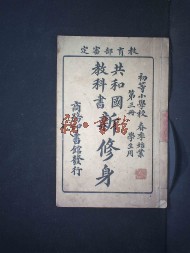 教育部審定
初等小學校 春季始業
第三冊 學生用
共和國
教科書
新修身
商務印書館發行